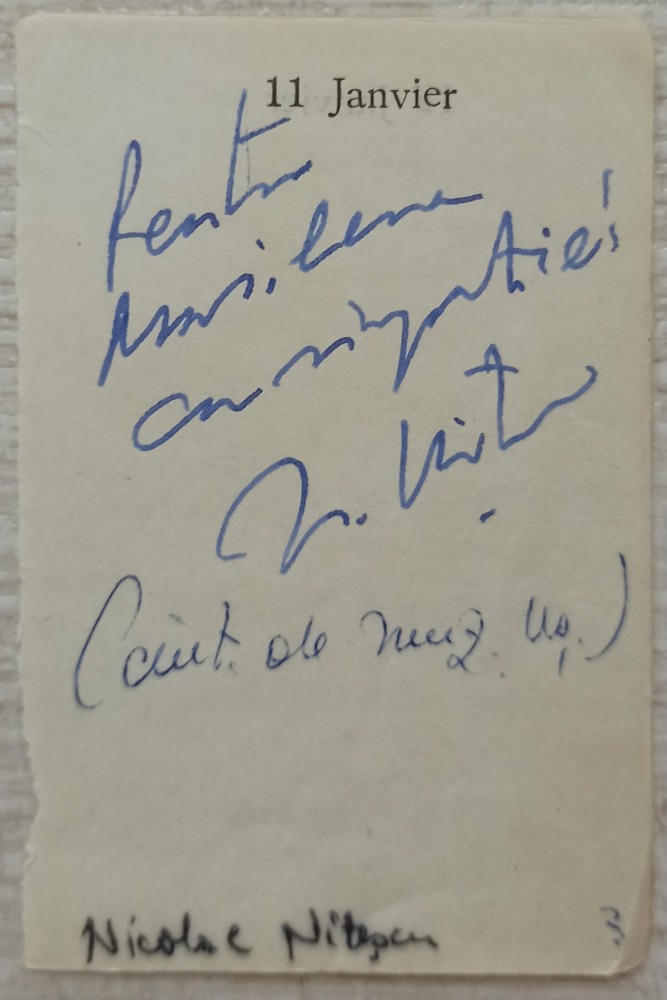 11 Janvier
Pentru
Marilena
cu simpatie!
N. Nițescu
(cânt. de muz. uș.)
Nicolae Nițescu